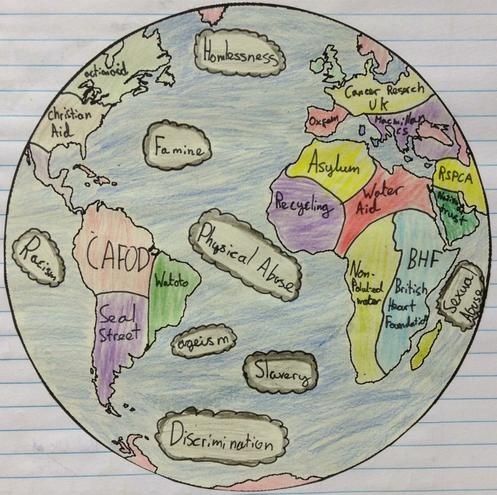 Homlessness
actionaid
Christian
Aid
Famine
Cancer Reserch
UK
Oxfam
Macmillan
Asylum
RSPCA
Recycling
Water
Aid
National
Trust
Racism
CAFOD
Watoto
Physical Abuse
Non-
Poluted
water
BHF
British
Heart
Foundation
Sexual
Abuse
Seal
Street
ageism
Slavery
Discrimination